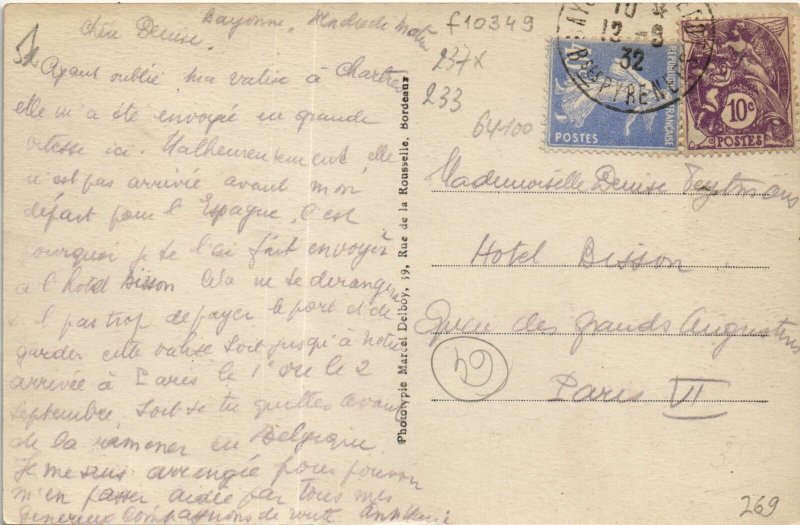 Bayonne, Mercredi matin
Chère Denise.
Ayant oublié ma valise à Chartres
elle m'a été envoyé en grande
vitesse ici. Malheureusement elle
n'est pas arrivée avant mon
départ pour l'Espagne, c'est
pourquoi je te l'ai fait envoyer
à l'hotel Bisson. Cela ne te derangera
il pas trop de payer le port et de
garder cette valise soit jusqu'à notre
arrivée à Paris le 1er ou le 2
Septembre, soit si tu quittes avant
de la ramener en Belgique
Je me suis arrangée pour pouvoir
m'en passer aidée par tous mes
genereux compagnons de route
f10349
237X
233
64100
Photoypie Marcel Delboy, 39, Rue de la Rousselle, Bordeaux
10
12-8
32
BSES PYRENEES
POSTES
FRANÇAISE
10c
POSTES
Mademoiselle Denise
Hotel Bisson
Quai des grands Augustins
Paris VI
64
269